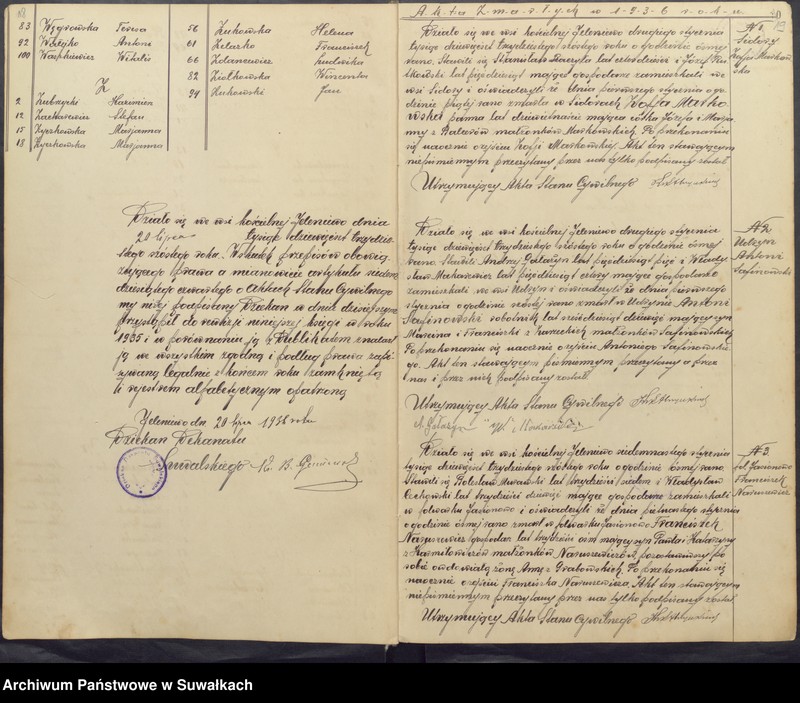 83 Węgrowska Teresa
92 Wołejko Antoni
100 Waszkiewicz Witalis
Z
2 Zubrycki Kazimierz
12 Zacharewicz Stefan
15 Zyzkowska Marjanna
18 Zyzkowska Marjanna
56 Żukowska Helena
61 Żelazko Franciszek
66 Żdanewicz Ludwika
82 Ziółkowska Wincenta
94 Żukowski Jan
Działo się we wsi kościelnej Jeleniewo dnia
20 lipca tysiąc dziewięćset trzydzie-
stego szóstego roku. Wskutek przepisów obowią-
zującego prawa a mianowicie artykułu siedem-
dziesiątego czwartego o Aktach Stanu Cywilnego
my niżej podpisany Dziekan w dniu dzisiejszym
przystąpił do rewizji niniejszej księgi w roku
1935 i w porównaniu ją z Dublikatem znalazł
ją we wszystkim zgodną i podług prawa zapi-
sywaną legalnie z końcem roku zamkniętą
i rejestrem alfabetycznym opatrzoną
Jeleniewo dn. 20 lipca 1936 roku
Dziekan Dekanatu
Suwalskiego Ks. B.
Akta Zmarłych w 1936 roku
Działo się we wsi kościelnej Jeleniewo drugiego stycznia
tysiąc dziewięćset trzydziestego szóstego roku o godzinie ósmej
rano. Stawili się Stanisław lat czterdzieści i Józef
lat pięćdziesiąt mający gospodarze zamieszkali we
wsi Sidory i oświadczyli że dnia pierwszego stycznia o go-
dzinie piątej rano zmarła w Sidorach Zofja Mackow-
ska panna lat dziewiętnaście mająca córka Józefa i Marjan-
ny z małżonków Maskowskich. Po przekonaniu
się naocznie o zejściu Zofji Maskowskiej Akt ten stawającym
niepiśmiennym przeczytany przez nas tylko podpisany został
Utrzymujący Akta Stanu Cywilnego
№ 1.
Sidory
Zofja Maskow-
ska
Działo się we wsi kościelnej Jeleniewo drugiego stycznia
tysiąc dziewięćset trzydziestego szóstego roku o godzinie ósmej
rano. Stawili Andrzej Gałaszyn lat pięćdziesiąt pięć i Włady-
sław Makarewicz lat pięćdziesiąt cztery mające gospodarze
zamieszkali we wsi Udzyn i oświadczyli że dnia pierwszego
stycznia o godzinie szóstej rano zmarł w Udzynie Antoni
Safinowski robotnik lat sześćdziesiąt dziewięć mający syn
Marcina i Franciszki z małżonków Safinowskich
Po przekonaniu się naocznie o zejściu Antoniego Safinowskie-
go. Akt ten stawającym piśmiennym przeczytany a przez
nas i przez nich podpisany został
Utrzymujący Akta Stanu Cywilnego
№ 2
Udzyn
Antoni
Safinowski
Działo się we wsi kościelnej Jeleniewo siedemnastego stycznia
tysiąc dziewięćset trzydziestego szóstego roku o godzinie ósmej rano.
Stawili się Bolesław Murawski lat trzydzieści siedem i Władysław
Cichowski lat trzydzieści dziewięć mające gospodarze zamieszkali
w folwarku Janionowo i oświadczyli że dnia piętnastego stycznia
o godzinie ósmej rano zmarł w folwarku Janionowo Franciszek
Naruszewicz gospodarz lat trzydzieści osiem mający syn Pawła i Katarzyny
z Karmiłowiczów małżonków Naruszewiczów, pozostawiwszy po
sobie owdowiałą żonę Annę z Grabowskich. Po przekonaniu się
naocznie o zejściu Franciszka Naruszewicza, Akt ten stawającym
niepiśmiennym przeczytany przez nas tylko podpisany został
Utrzymujący Akta Stanu Cywilnego
№ 3.
fol. Janionowo
Franciszek
Naruszewicz
Archiwum Państwowe w Suwałkach